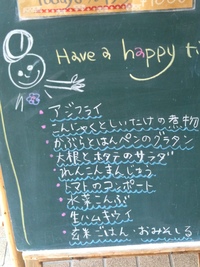 Have a happy ti
アジフライ
こんにゃくとしいたけの煮物
かぶらとはんぺんのグラタン
大根とホタテのサラダ
れんこんまんじゅう
トマトのコンポート
水菜こんぶ
生ハムキウイ
玄米ごはん・おみそしる